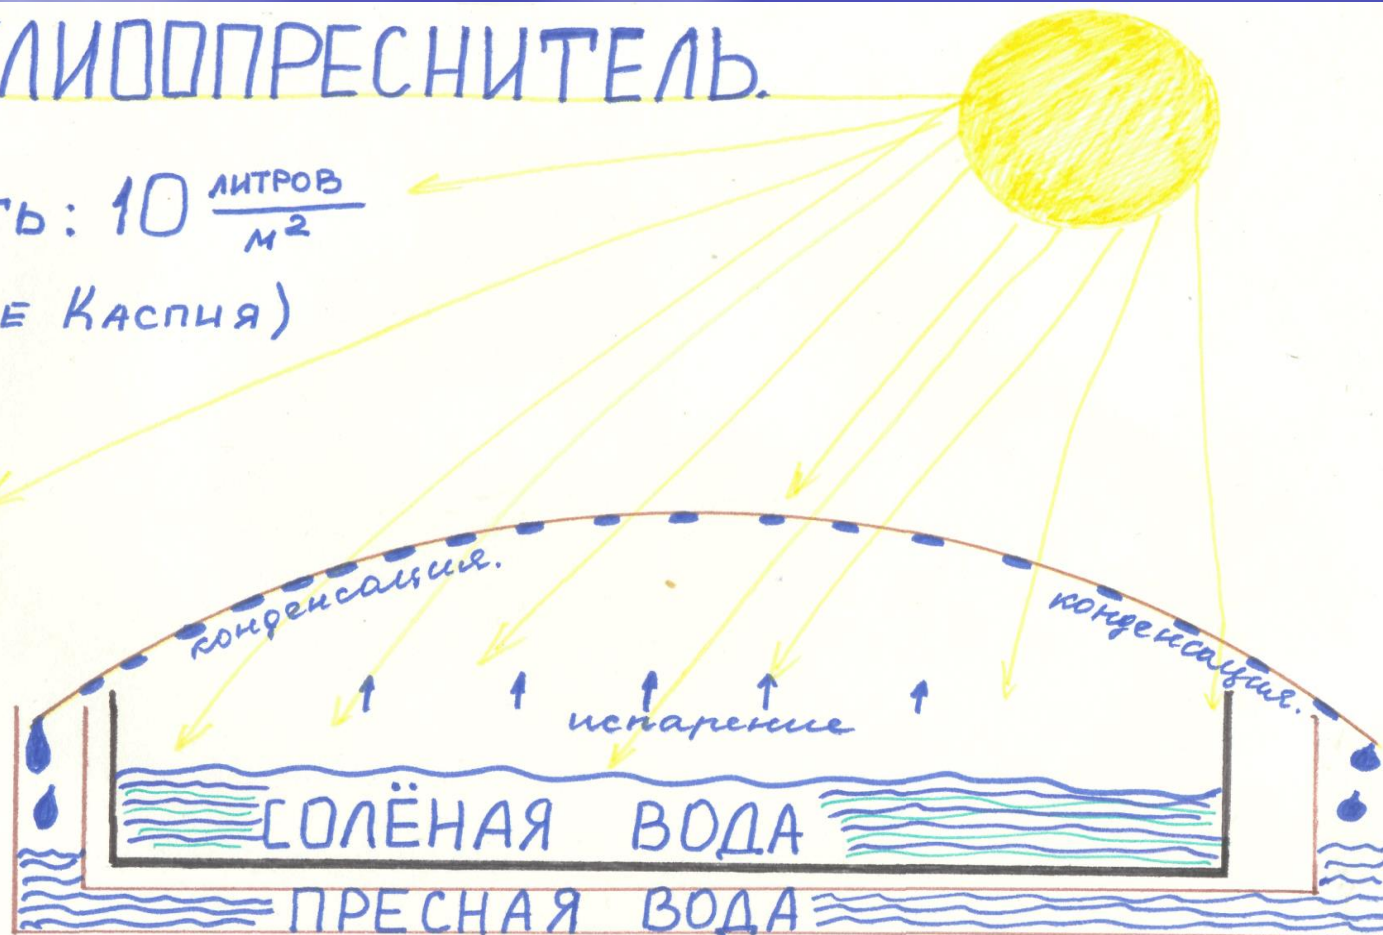 ЛИООПРЕСНИТЕЛЬ.
ть: 10 литров/м²
е Каспия)
конденсация.
конденсация.
испарение
СОЛЁНАЯ ВОДА
ПРЕСНАЯ ВОДА